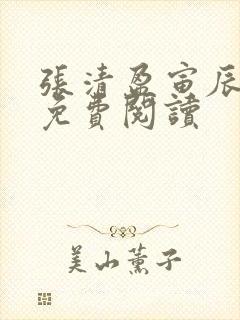 張清盈寅辰
免費閱讀
美山薰子